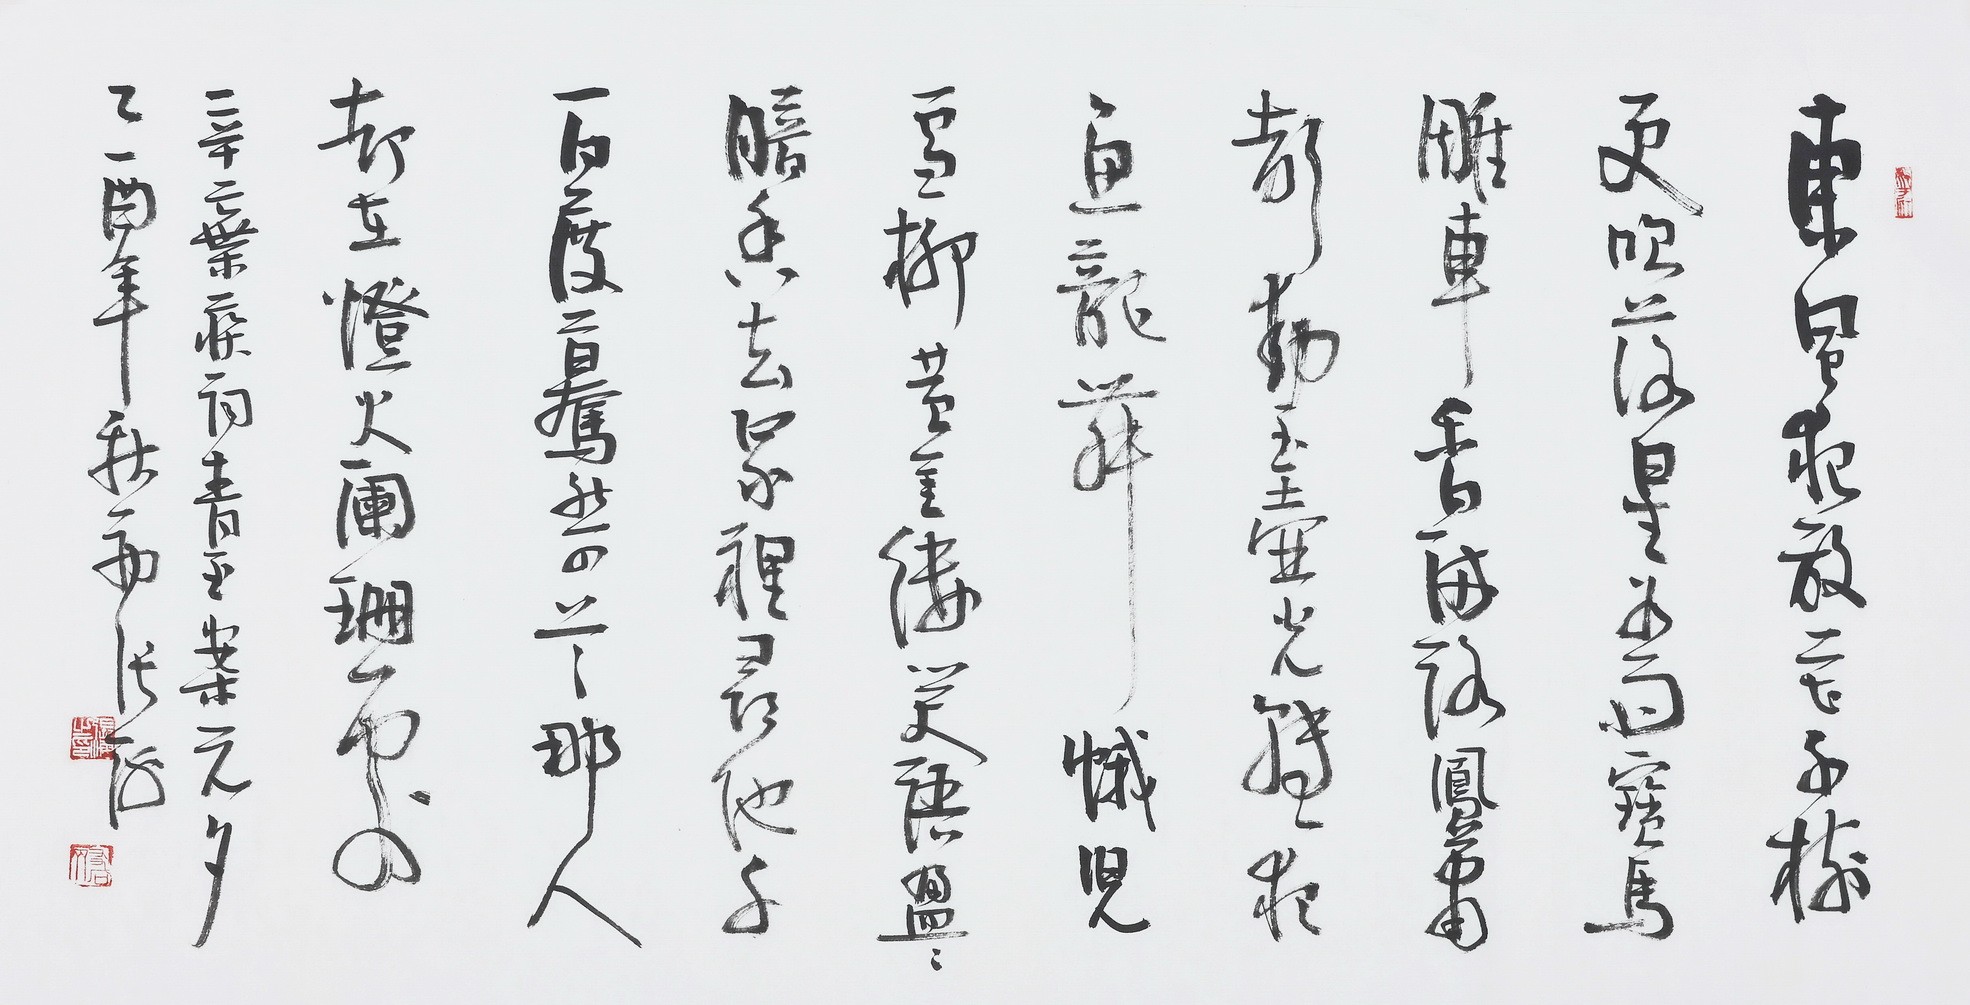 東風夜放花千樹
更吹落星如雨寶馬
雕車香滿路鳳簫
聲動玉壺光轉一夜
魚龍舞蛾兒
雪柳黃金縷笑語盈〻
暗香去眾裡尋他千
百度驀然回首那人
却在燈火闌珊處
辛棄疾詞青玉案元夕
乙酉年秋張海